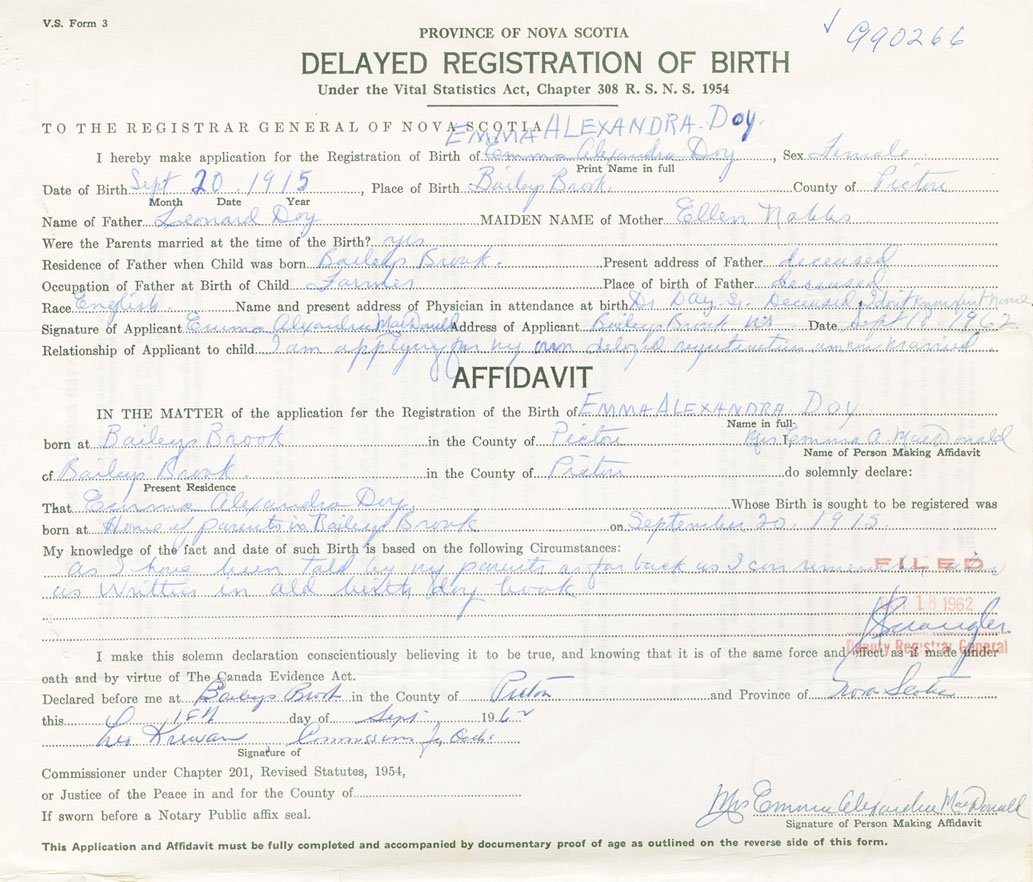 V.S. Form 3
990266
PROVINCE OF NOVA SCOTIA
DELAYED REGISTRATION OF BIRTH
Under the Vital Statistics Act, Chapter 308 R. S. N. S. 1954
TO THE REGISTRAR GENERAL OF NOVA SCOTIA
EMMA ALEXANDRA. Doy.
I hereby make application for the Registration of Birth of Emma Alexandra Doy, Sex Female
Print Name in full
Date of Birth Sept 20 1915, Place of Birth Baileys Brook. County of Pictou
Month Date Year
Name of Father Leonard Doy MAIDEN NAME of Mother Ellen Nabbs
Were the Parents married at the time of the Birth? yes
Residence of Father when Child was born Baileys Brook. Present address of Father deceased
Occupation of Father at Birth of Child Farmer Place of birth of Father deceased
Race English. Name and present address of Physician in attendance at birth Dr Day Deceased I dont know first name
Signature of Applicant Emma Alexandra MacDonald Address of Applicant Baileys Brook N.S. Date Sept 18. 1962
Relationship of Applicant to child I am applying for my own delayed registration am now Married.
AFFIDAVIT
IN THE MATTER of the application for the Registration of the Birth of EMMA ALEXANDRA DOY
Name in full
born at Baileys Brook in the County of Pictou I, Mrs Emma A. MacDonald
Name of Person Making Affidavit
of Baileys Brook. in the County of Pictou do solemnly declare:
Present Residence
That Emma Alexandra Doy Whose Birth is sought to be registered was
born at Home of parents in Baileys Brook on September 20. 1915.
My knowledge of the fact and date of such Birth is based on the following Circumstances:
as I have been told by my parents as far back as I can
as written in old birth day book
FILED
18 1962
Deputy Registrar General
I make this solemn declaration conscientiously believing it to be true, and knowing that it is of the same force and effect as if made under
oath and by virtue of The Canada Evidence Act.
Declared before me at Baileys Brook in the County of Pictou and Province of Nova Scotia
this day of Sept 1962
Leo Commissioner
Signature of
Commissioner under Chapter 201, Revised Statutes, 1954,
or Justice of the Peace in and for the County of
If sworn before a Notary Public affix seal.
Mrs Emma Alexandra MacDonald
Signature of Person Making Affidavit
This Application and Affidavit must be fully completed and accompanied by documentary proof of age as outlined on the reverse side of this form.